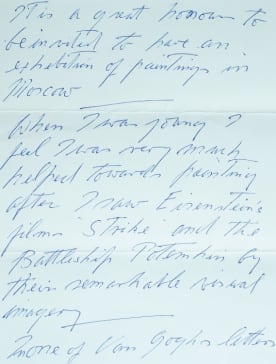 It is a great honour to
be invited to have an
exhibition of paintings in
Moscow
When I was young I
feel I was very much
helped towards painting
after I saw Eisenstein's
films Strike and the
Battleship Potemkin by
their remarkable visual
imagery
In one of Van Goghs letters